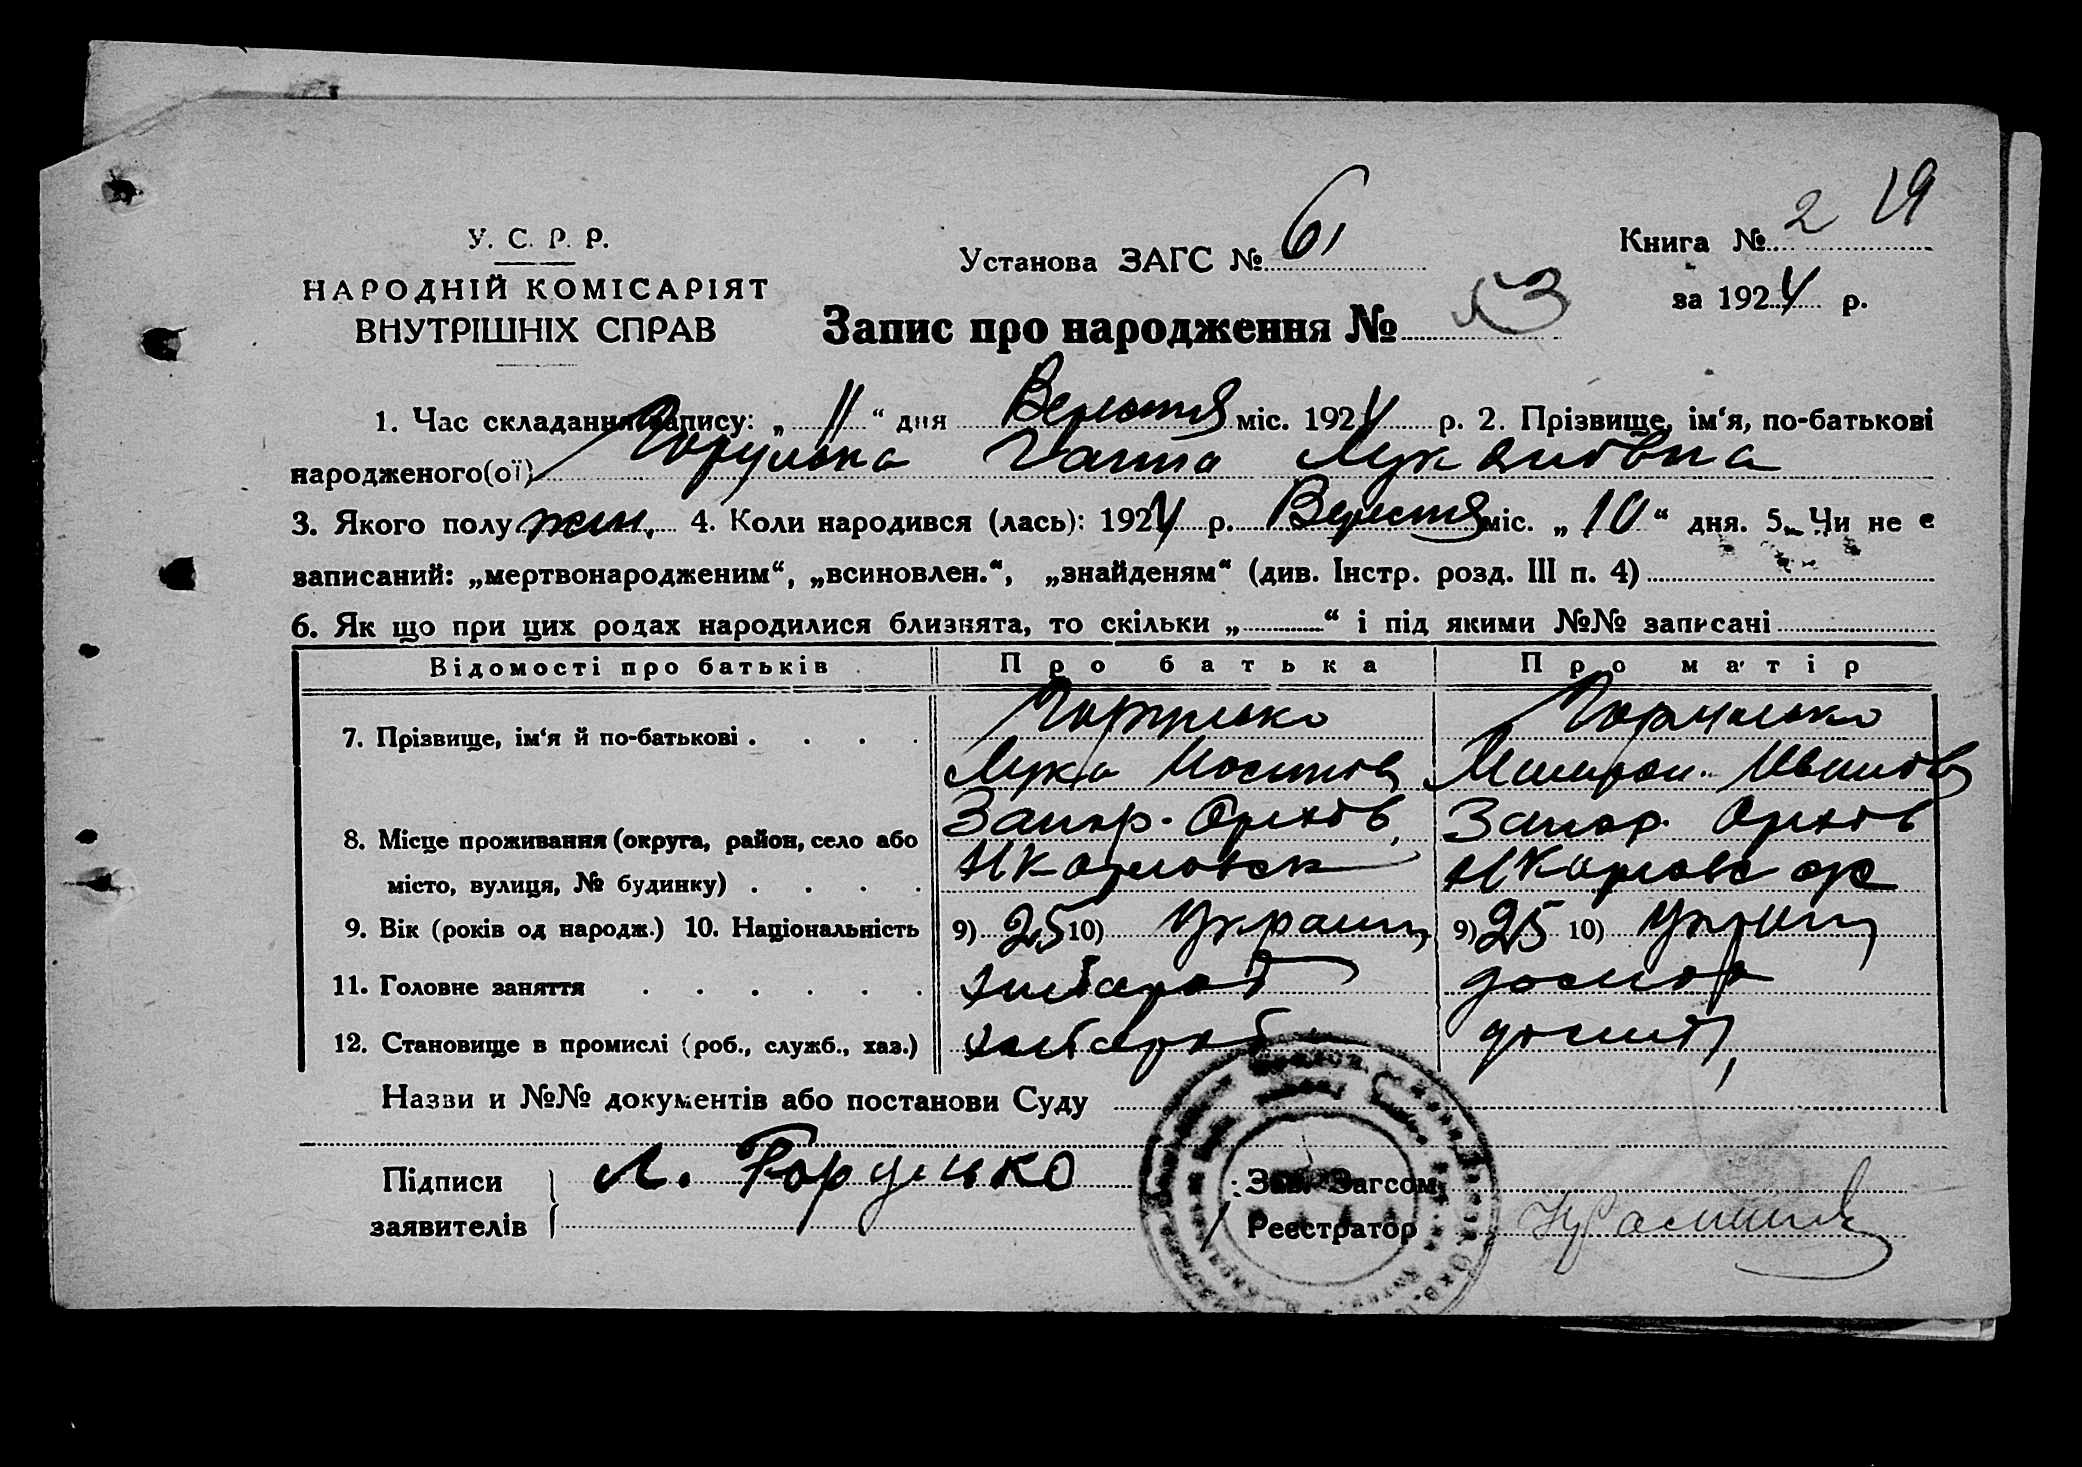 19
У. С. Р. Р.
Установа ЗАГС № 61
Книга № 2
НАРОДНІЙ КОМІСАРІЯТ
ВНУТРІШНІХ СПРАВ
за 1924 р.
Запис про народження № 53
1. Час складання запису: „ 11 “ дня Вересня міс. 1924 р. 2. Прізвище, ім‘я, по-батькові
народженого(ої) Горулько Ганна
3. Якого полу жин. 4. Коли народився (лась): 1924 р. Вересня міс. „ 10 “ дня. 5. Чи не є
записаний: „мертвонародженим“, „всиновлен.“, „знайденям“ (див. Інстр. розд. III п. 4)
6. Як що при цих родах народилися близнята, то скільки „ “ і під якими №№ записані
Відомості про батьків Про батька Про матір
7. Прізвище, ім‘я й по-батькові Горулько Горулько
Лука
8. Місце проживання (округа, район, село або Запор. Оріхов, Запор. Оріхов
місто, вулиця, № будинку) НКарловск
9. Вік (років од народж.) 10. Національність 9) 25 10) Украин 9) 25 10) Украин
11. Головне заняття хлібароб
12. Становище в промислі (роб., служб., хаз.) хлібароб
Назви и №№ документів або постанови Суду
Підписи Л. Горулько Зав. Загсом
заявителів Реєстратор